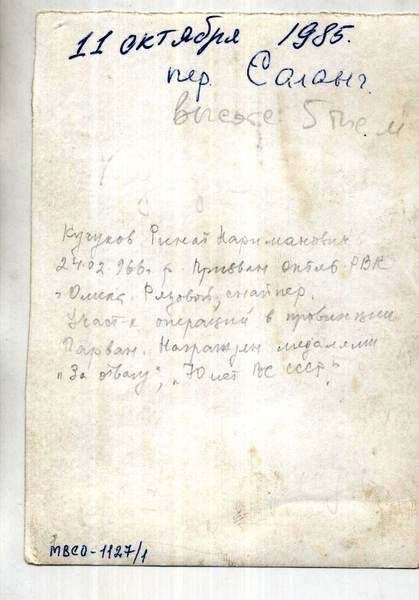 11 октября 1985.
пер. Саланг.
высота 5 тыс м
Кучуков Ринат Нариманович
24.02.966 г.р. Призван Октяб РВК
г Омска. Рядовой, снайпер.
Участ-к операций в провинции
Парван. Награжден медалями
"За отвагу", "70 лет ВС СССР"
МВСО-1127/1